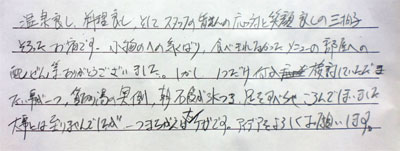 温泉良し、料理良し、そしてスタッフの皆さんの応対と笑顔良しの三拍子
そろったお宿です。小物への気くばり、食べきれなかったメニューの部屋への
ありがとうございました。しかし 1つだけ 検討していただき
たい事が一つ、露天風呂の 朝 石段が氷つき、足をすべらせ ころんでしまいました
大事には至りませんでしたが 一つまちがえば大ケガです。 よろしくお願いします。